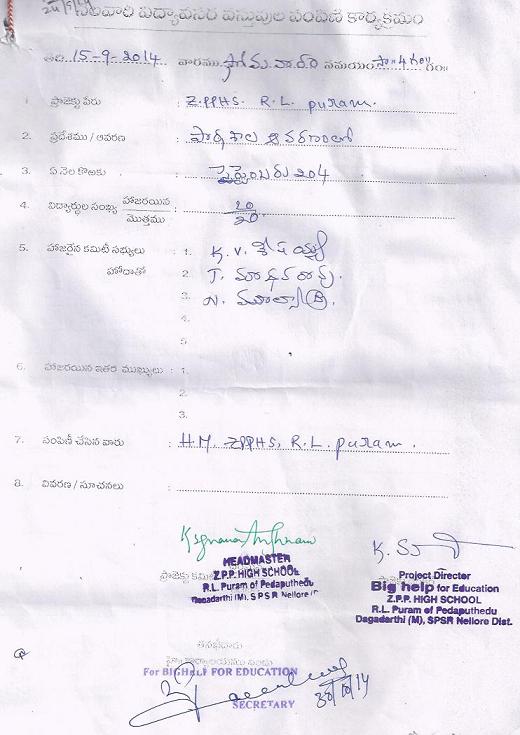 నెలవారీ విద్యావసర వస్తువుల పంపిణీ కార్యక్రమం
తేది 15-9-2014 వారము సోమవారం సమయం సా॥ 4 గం॥
1. ప్రాజెక్టు పేరు : Z.P.P.H.S. R.L. puram.
2. ప్రదేశము / ఆవరణ : పాఠశాల ఆవరణంలో
3. ఏ నెల కొఱకు : సెప్టెంబరు 204
4. విద్యార్థుల సంఖ్య హాజరయిన : 20
మొత్తము 20
5. హాజరైన కమిటీ సభ్యులు : 1. K.V. శేషయ్య
హోదాతో 2. T. మాధవరావు.
3. N.
4.
5.
6. హాజరయిన ఇతర ముఖ్యులు : 1.
2.
3.
7. పంపిణీ చేసిన వారు : H.M. ZPPHS, R.L. puram.
8. వివరణ / సూచనలు :
HEADMASTER
Z.P.P. HIGH SCHOOL
R.L. Puram of Pedaputhedu
Dagadarthi (M), S P S R Nellore
Project Director
Big help for Education
Z.P.P. HIGH SCHOOL
R.L. Puram of Pedaputhedu
Dagadarthi (M), SPSR Nellore Dist.
For BIGHELP FOR EDUCATION
30/10/14
SECRETARY